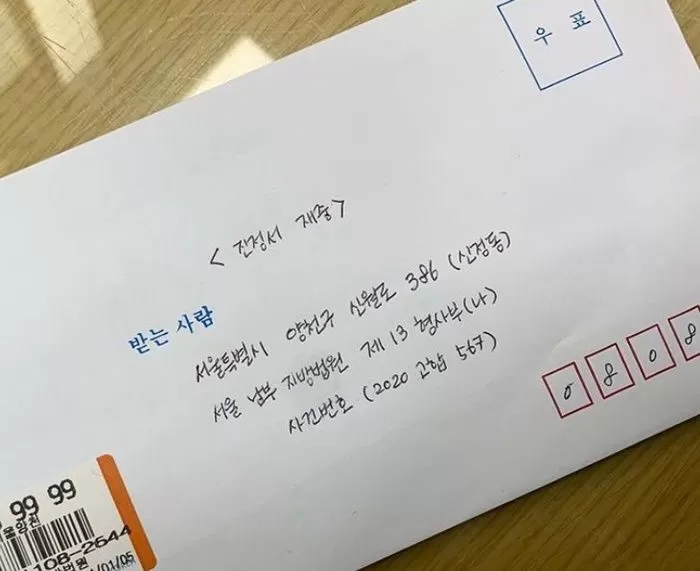 우 표
< 진정서 재중>
받는 사람
서울특별시 양천구 신월로 386 (신정동)
서울 남부 지방법원 제 13 형사부(나)
사건번호 (2020 고합 567)
0 8 0 8
99 99
108-2644
/01/05